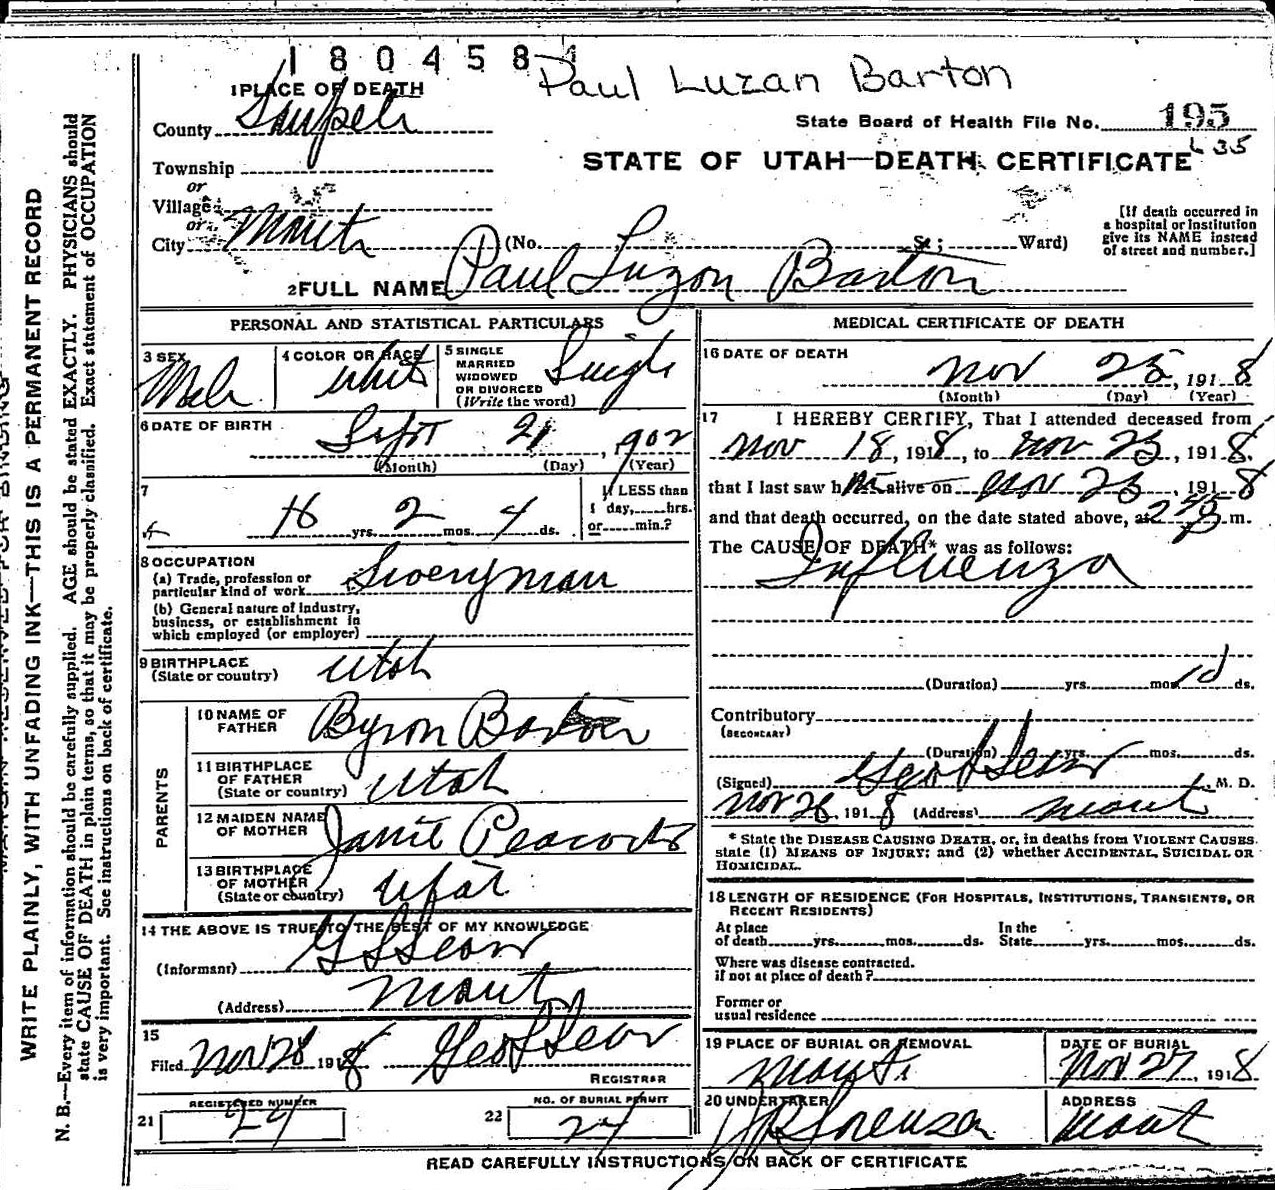 1 8 0 4 5 8 1
Paul Luzan Barton
1 PLACE OF DEATH
County Sanpete
State Board of Health File No. 195
435
Township
STATE OF UTAH—DEATH CERTIFICATE
or
Village
or
City Manti (No. St.; Ward)
[If death occurred in
a hospital or institution
give its NAME instead
of street and number.]
2 FULL NAME Paul Luzon Barton
PERSONAL AND STATISTICAL PARTICULARS
3 SEX Male
4 COLOR OR RACE White
5 SINGLE
MARRIED
WIDOWED
OR DIVORCED
(Write the word) Single
6 DATE OF BIRTH Sept 21, 1902
(Month) (Day) (Year)
7
16 yrs. 2 mos. 4 ds.
If LESS than
1 day, hrs.
or min.?
8 OCCUPATION
(a) Trade, profession or
particular kind of work
(b) General nature of industry,
business, or establishment in
which employed (or employer)
9 BIRTHPLACE
(State or country) Utah
PARENTS
10 NAME OF
FATHER Byron Barton
11 BIRTHPLACE
OF FATHER
(State or country) Utah
12 MAIDEN NAME
OF MOTHER Janie Peacock
13 BIRTHPLACE
OF MOTHER
(State or country) Utah
14 THE ABOVE IS TRUE TO THE BEST OF MY KNOWLEDGE
(Informant) G L Sears
(Address) Manti
15
Filed Nov 28 1918 Geo L Sears
REGISTRAR
21 REGISTERED NUMBER
22 NO. OF BURIAL PERMIT
MEDICAL CERTIFICATE OF DEATH
16 DATE OF DEATH
Nov 25, 1918
(Month) (Day) (Year)
17 I HEREBY CERTIFY, That I attended deceased from
Nov 18, 1918, to Nov 25, 1918.
that I last saw him alive on Nov 25, 1918
and that death occurred, on the date stated above, at m.
The CAUSE OF DEATH* was as follows:
Influenza
(Duration) yrs. mos. ds.
Contributory
(SECONDARY)
(Duration) yrs. mos. ds.
(Signed) Geo L Sears M. D.
Nov 26, 1918 (Address) Manti
* State the DISEASE CAUSING DEATH, or, in deaths from VIOLENT CAUSES.
state (1) MEANS OF INJURY; and (2) whether ACCIDENTAL, SUICIDAL OR
HOMICIDAL.
18 LENGTH OF RESIDENCE (FOR HOSPITALS, INSTITUTIONS, TRANSIENTS, OR
RECENT RESIDENTS)
At place
of death yrs. mos. ds.
In the
State yrs. mos. ds.
Where was disease contracted.
if not at place of death?
Former or
usual residence
19 PLACE OF BURIAL OR REMOVAL
Manti
DATE OF BURIAL
Nov 27, 1918
20 UNDERTAKER
ADDRESS
Manti
READ CAREFULLY INSTRUCTIONS ON BACK OF CERTIFICATE
MARGIN RESERVED FOR BINDING
WRITE PLAINLY, WITH UNFADING INK—THIS IS A PERMANENT RECORD
N. B.—Every item of information should be carefully supplied. AGE should be stated EXACTLY. PHYSICIANS should
state CAUSE OF DEATH in plain terms, so that it may be properly classified. Exact statement of OCCUPATION
is very important. See instructions on back of certificate.